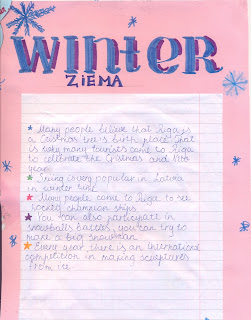 WINTER
ZIEMA
Many people believe that Riga is
a Cristmas tree's birth place. That
is why many tourists come to Riga
to celebrate the Cristmas and New
years
Skiing is very popular in Latvia
in winter time
Many people come to Riga to see
hockey champion ships
You can also participate in
snowballs battles, you can try to
make a big snowman.
Every year there is an international
competition in making sculptures
from ice